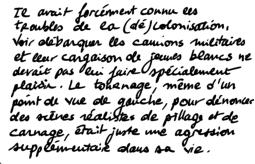 Il avait forcément connu les
troubles de la (dé)colonisation.
Voir débarquer les camions militaires
et leur cargaison de jeunes blancs ne
devait pas lui faire spécialement
plaisir. Le tournage, même d'un
point de vue de gauche, pour dénoncer
des scènes réalistes de pillage et de
carnage, était juste une agression
supplémentaire dans sa vie.